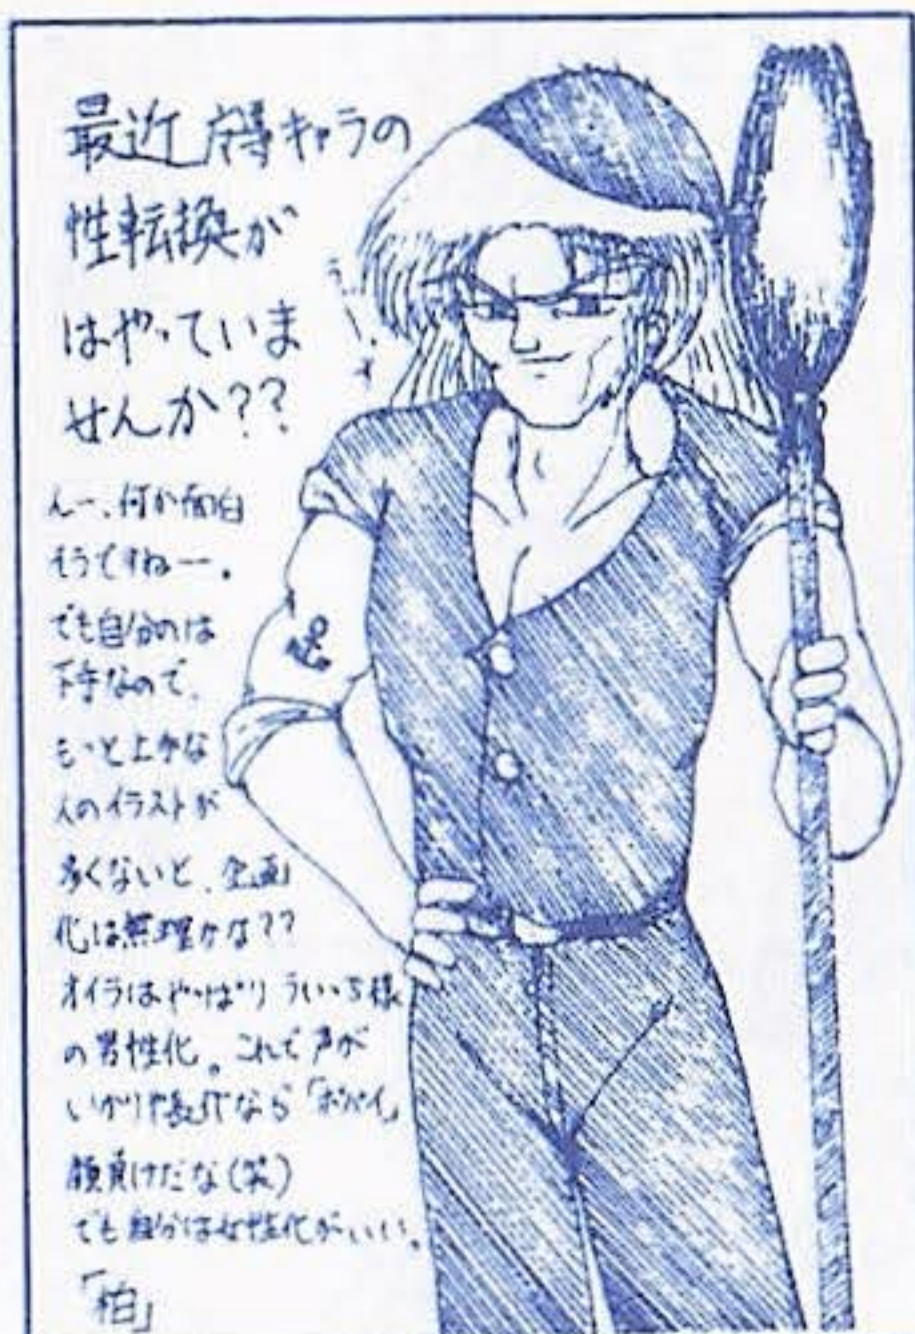 最近 キャラの
性転換が
はやっていま
せんか??
んー、何か面白
そうですねー。
でも自分のは
下手なので、
もっと上手な
人のイラストが
多くないと、企画
化は無理かな??
オイラはやっぱり ういっち様
の男性化。これで声が
いかりや長介なら「ポパイ」
顔負けだな(笑)
でも自分は女性化がいい。
「柏」